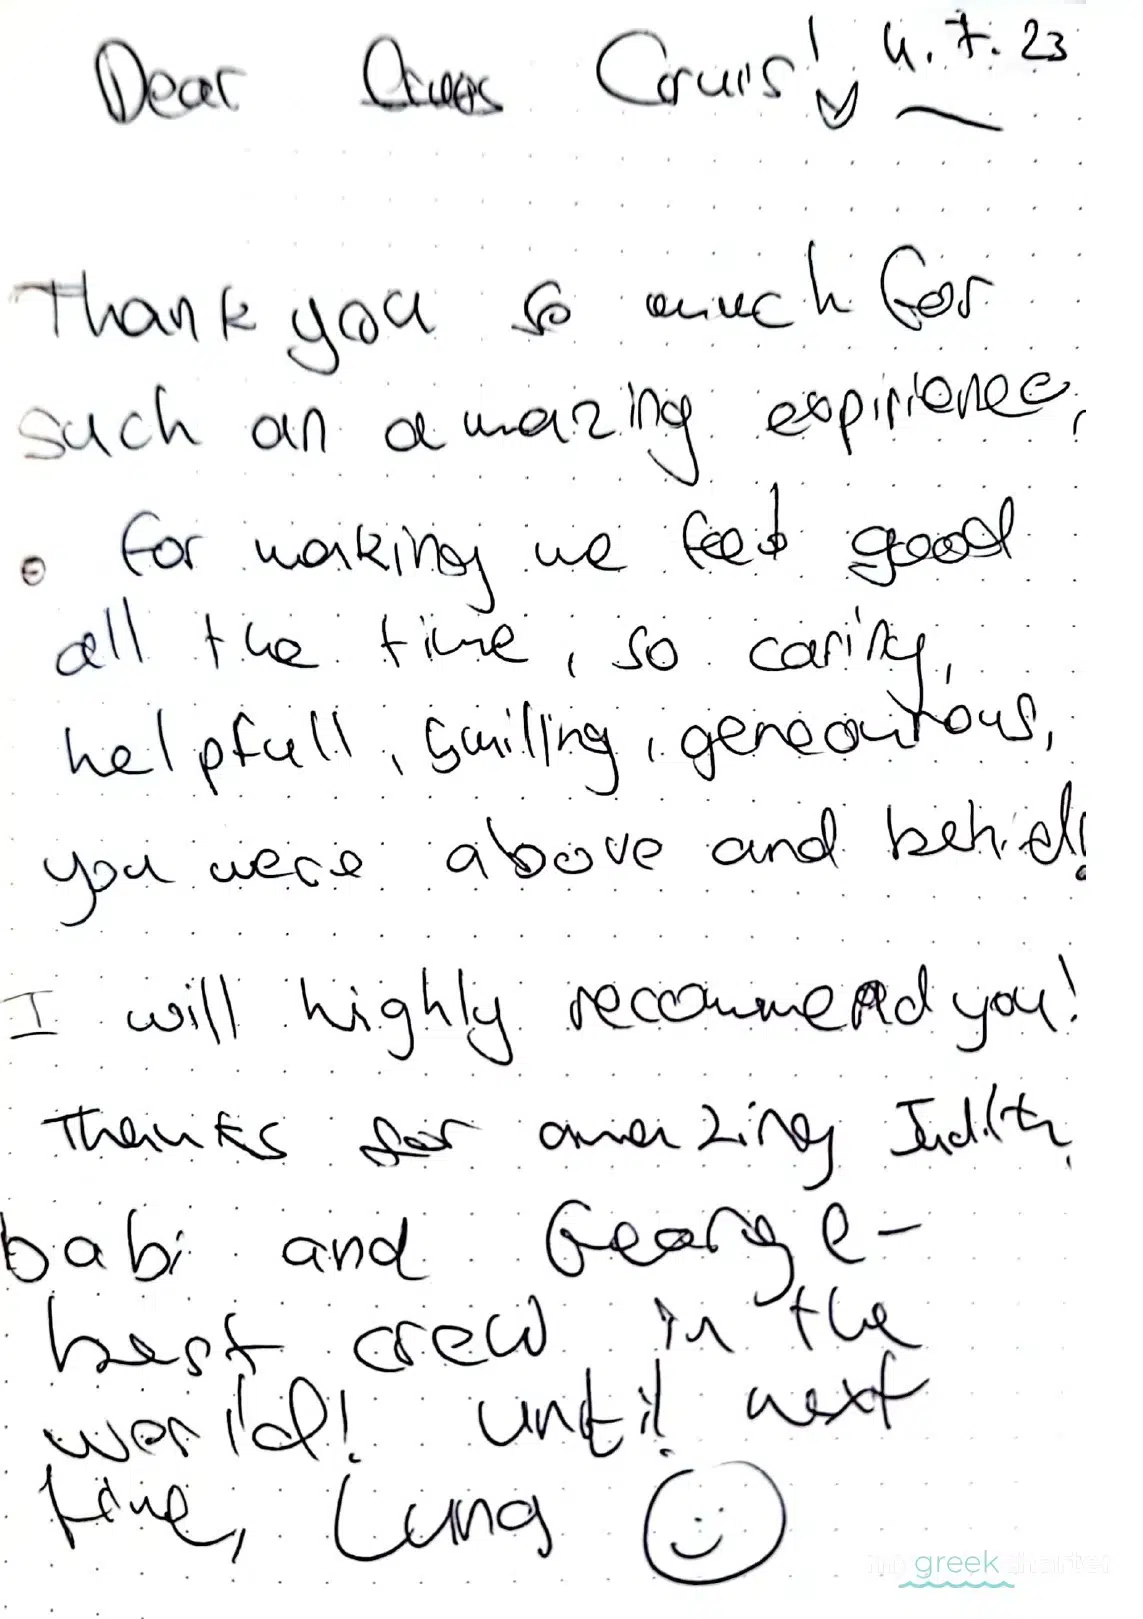 Dear Cruis! 4.7.23
Thank you so much for
such an amazing expirience,
for making me feel good
all the time, so caring,
helpfull, smilling, geneourous,
you were above and behid!
I will highly recommend you!
Thanks for amazing Judith,
babi and George-
best crew in the
world! until next
time, Luna
my greek charter